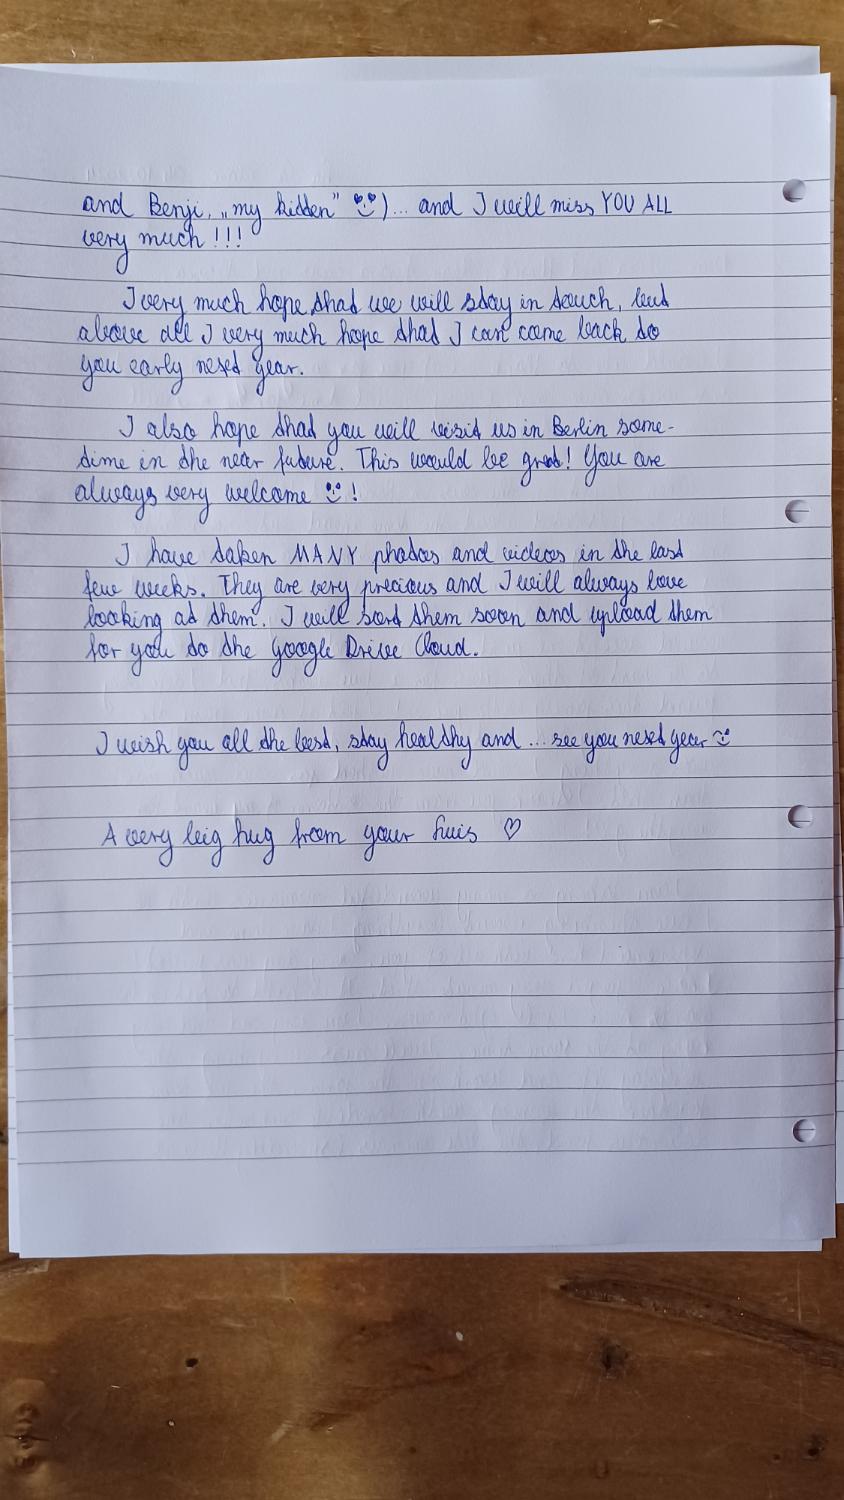 and Benji, „my kidden" 😍)... and I will miss YOU ALL
very much !!!
I very much hope that we will stay in touch, but
above all I very much hope that I can come back to
you early next year.
I also hope that you will visit us in Berlin some-
time in the near future. This would be great! You are
always very welcome 😊!
I have taken MANY photos and videos in the last
few weeks. They are very precious and I will always love
looking at them. I will sort them soon and upload them
for you to the Google Drive Cloud.
I wish you all the best, stay healthy and ... see you next year 😉
A very big hug from your ♡